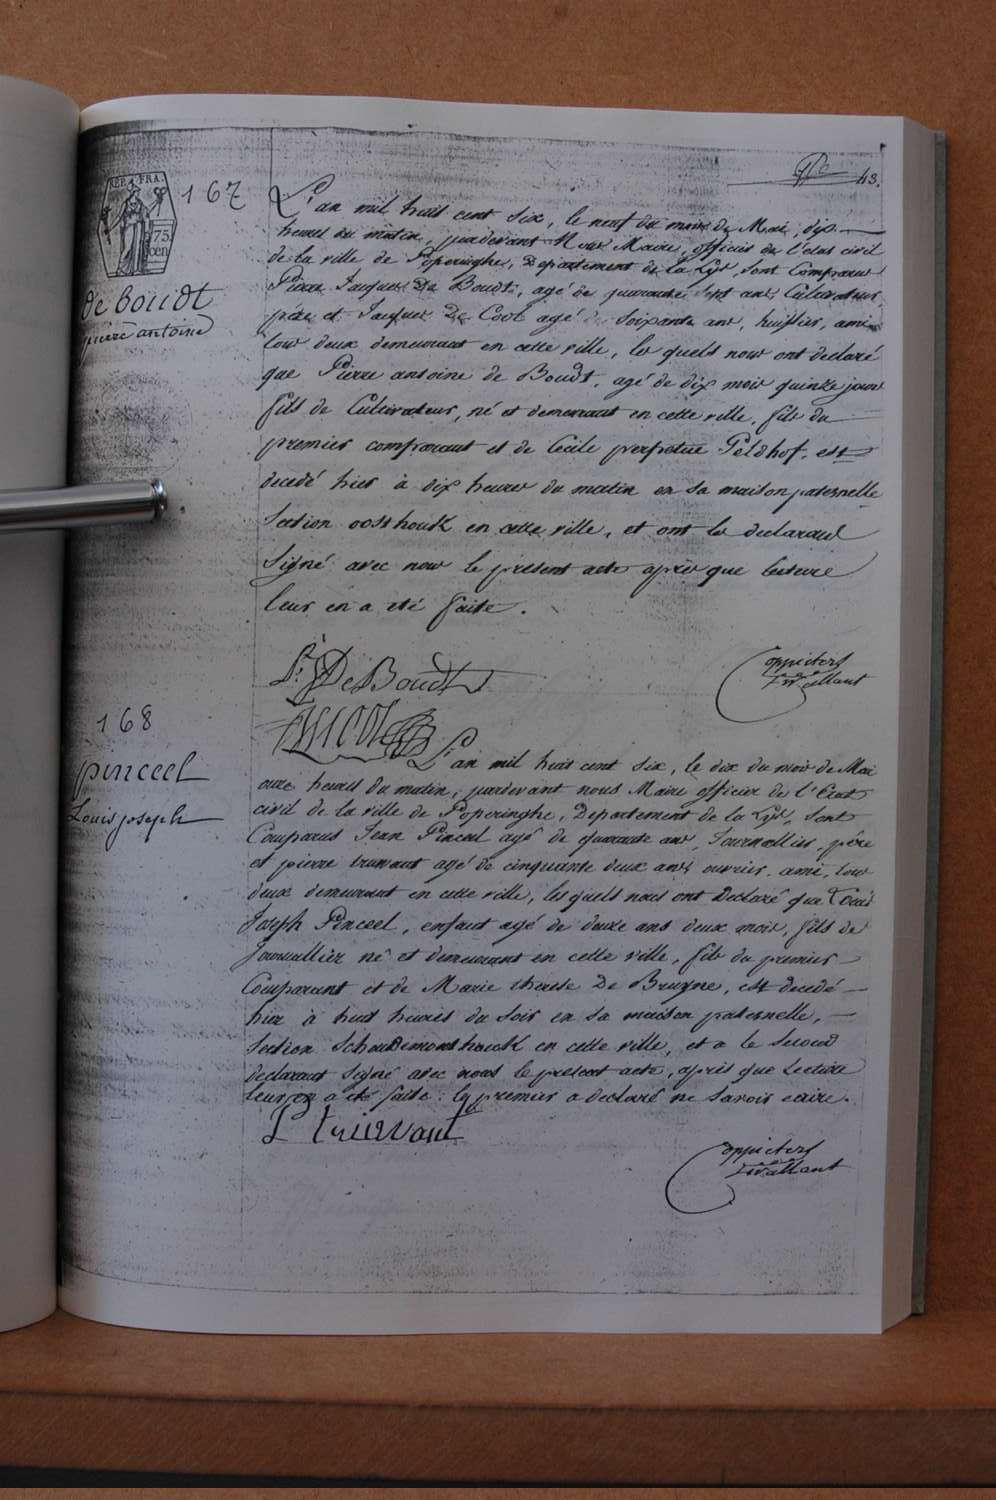 43.
REP. FRA.
75.
cen
167
de Boudt
pierre antoine
L'an mil huit cent six, le neuf du mois de Mai, dix
heures du matin, pardevant Nous Maire, officier de l'état civil
de la ville de Poperinghe, Departement de la Lys, sont Comparus
Pierre Jacques De Boudt, agé de quarante sept ans Cultivateur
père et Jacques De Cool agé de soixante ans, huissier, ami
tous deux demeurant en cette ville, les quels nous ont declaré
que Pierre antoine de Boudt, agé de dix mois quinze jours
fils de Cultivateur, né et demeurant en cette ville, fils du
premier comparant et de Cecile perpetue Peldhof, est
decedé hier à dix heures du matin en sa maison paternelle
section oosthouk en cette ville, et ont les declarans
signé avec nous le present acte après que lecture
leur en a été faite.
P: J DeBoudt
168
pinceel
Louis joseph
L'an mil huit cent six, le dix du mois de Mai
onze heures du matin, pardevant nous Maire officier de l'Etat
civil de la ville de Poperinghe, Departement de la Lys, sont
Comparus Jean Pinceel agé de quarante ans, Journallier, père
et pierre truwant agé de cinquante deux ans ouvrier, ami, tous
deux demeurant en cette ville, les quels nous ont Declaré que Louis
Joseph Pinceel, enfant agé de deuxe ans deux mois, fils de
Journallier né et demeurant en cette ville, fils du premier
Comparant et de Marie therese De Bruyne, est decedé
hier à huit heures du soir en sa maison paternelle,
section Schoudemonthouck en cette ville, et a le second
declarant signé avec nous le present acte, après que lecture
leur en a été faite: le premier a declaré ne savoir ecrire.